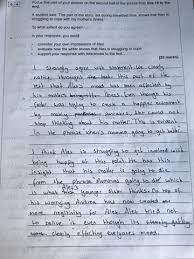 Focus this part of your answer on the second half of the source from line 19 to the end.
A student said "This part of the story, set during breakfast time, shows that Alex is struggling to cope with his mother's illness."
To what extent do you agree?
In your response, you could:
• consider your own impressions of Alex
• evaluate how the writer shows that Alex is struggling to cope
• support your response with references to the text.
[20 marks]
I strongly agree with statement. We clearly
notice through the text this part of the
text that Alex's mood has been affected by
his mothers illness. Even though his
father was trying to create a happier environment
by making pancakes he could not
stop thinking about his mother. This is evident
in the phrase when's mummy going to get
I think Alex is struggling to get involved with
being happy at this point. He has this
insight that his mother is going to die
from the phrase Mummy's going to die which
is what Alex's younger sister thinks. On top of
his worrying Andrea has now created
more negativity for Alex. Alex tried not
to believe it even though its
clearly effecting everyones mood.